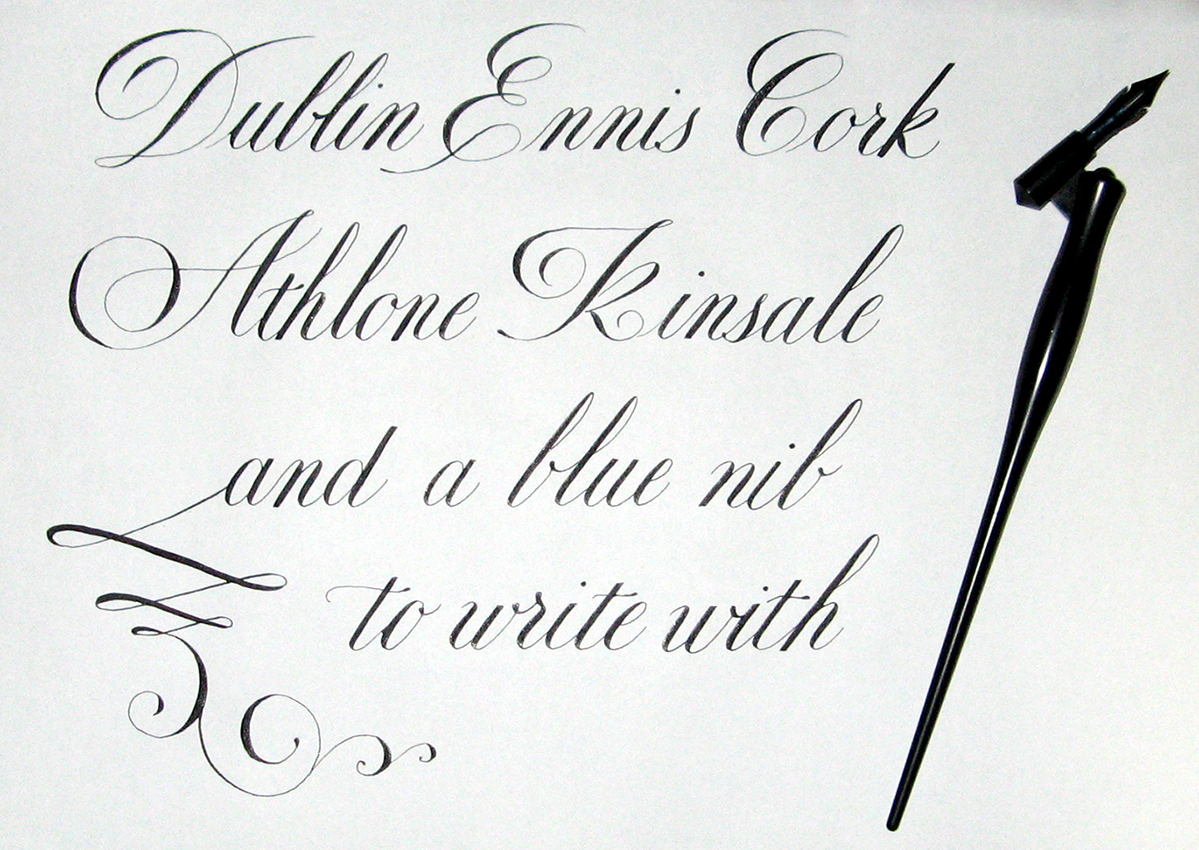 Dublin Ennis Cork
Athlone Kinsale
and a blue nib
to write with